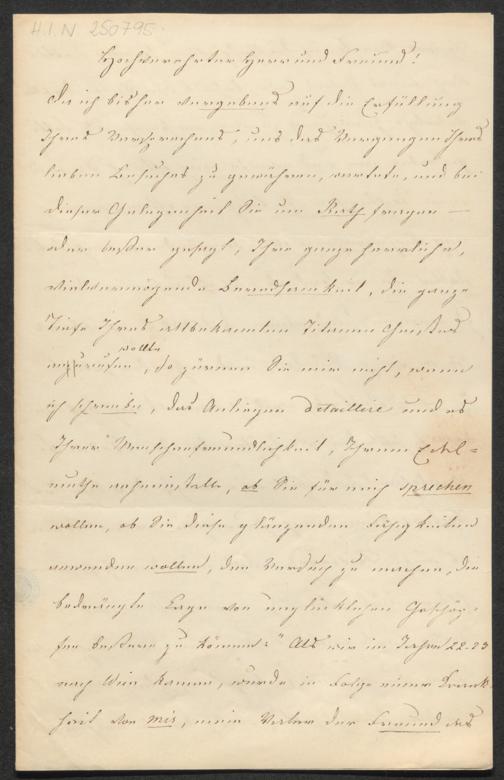 H.I.N 250795.
Hochverehrter Herr und Freund!
Da ich bisher vergebens auf die Erfüllung
Ihres Versprechens, uns das Vergnügen Ihres
lieben Besuches zu gewähren, wartete, und bei
dieser Gelegenheit Sie um Rath fragen —
oder besser gesagt, Ihre ganze herrliche,
vielvermögende Beredsamkeit, die ganze
Tiefe Ihres altbekannten Titanen Geistes
anzurufen wollte, so zürnen Sie mir nicht, wenn
ich schreibe, das Anliegen detaillire und es
Ihrer Menschenfreundlichkeit, Ihrem Edel=
muthe anheimstelle, ob Sie für mich sprechen
wollen, ob Sie diese glänzenden Fähigkeiten
anwenden wollen, den Versuch zu machen, die
bedrängte Lage von unglücklichen Geschöp-
fen bessern zu können:" Als wir im Jahre 22-23
nach Wien kamen, wurde in Folge einer Krank
heit von mir, mein Vater der Freund des